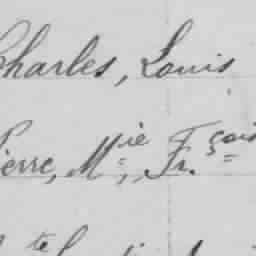 Charles, Louis
Pierre, M.ie, Fr.çois